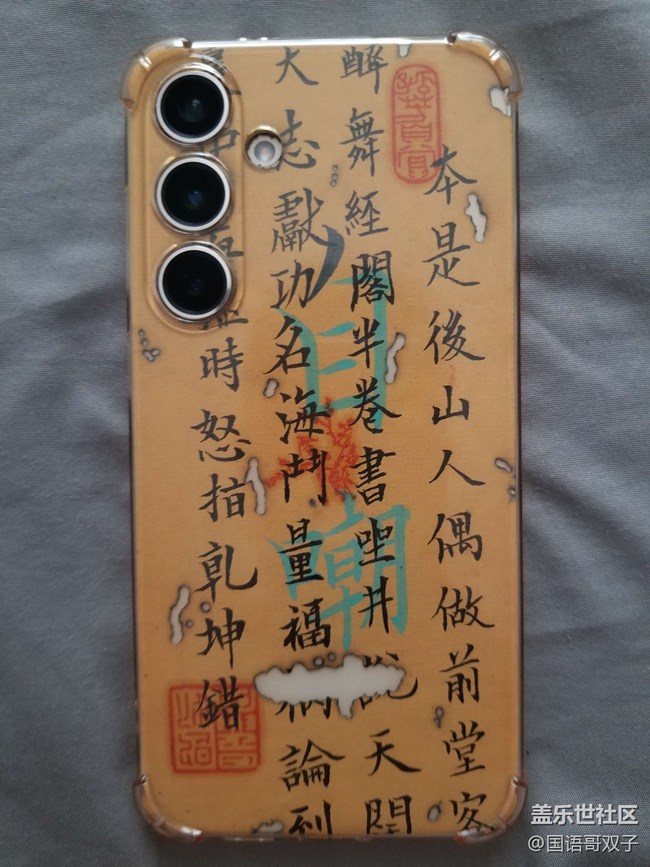 本是後山人偶做前堂客
醉舞經閣半卷書坐井說天
大志戲功名海鬥量福禍論到
時怒指乾坤錯
自嘲
盖乐世社区
@国语哥双子